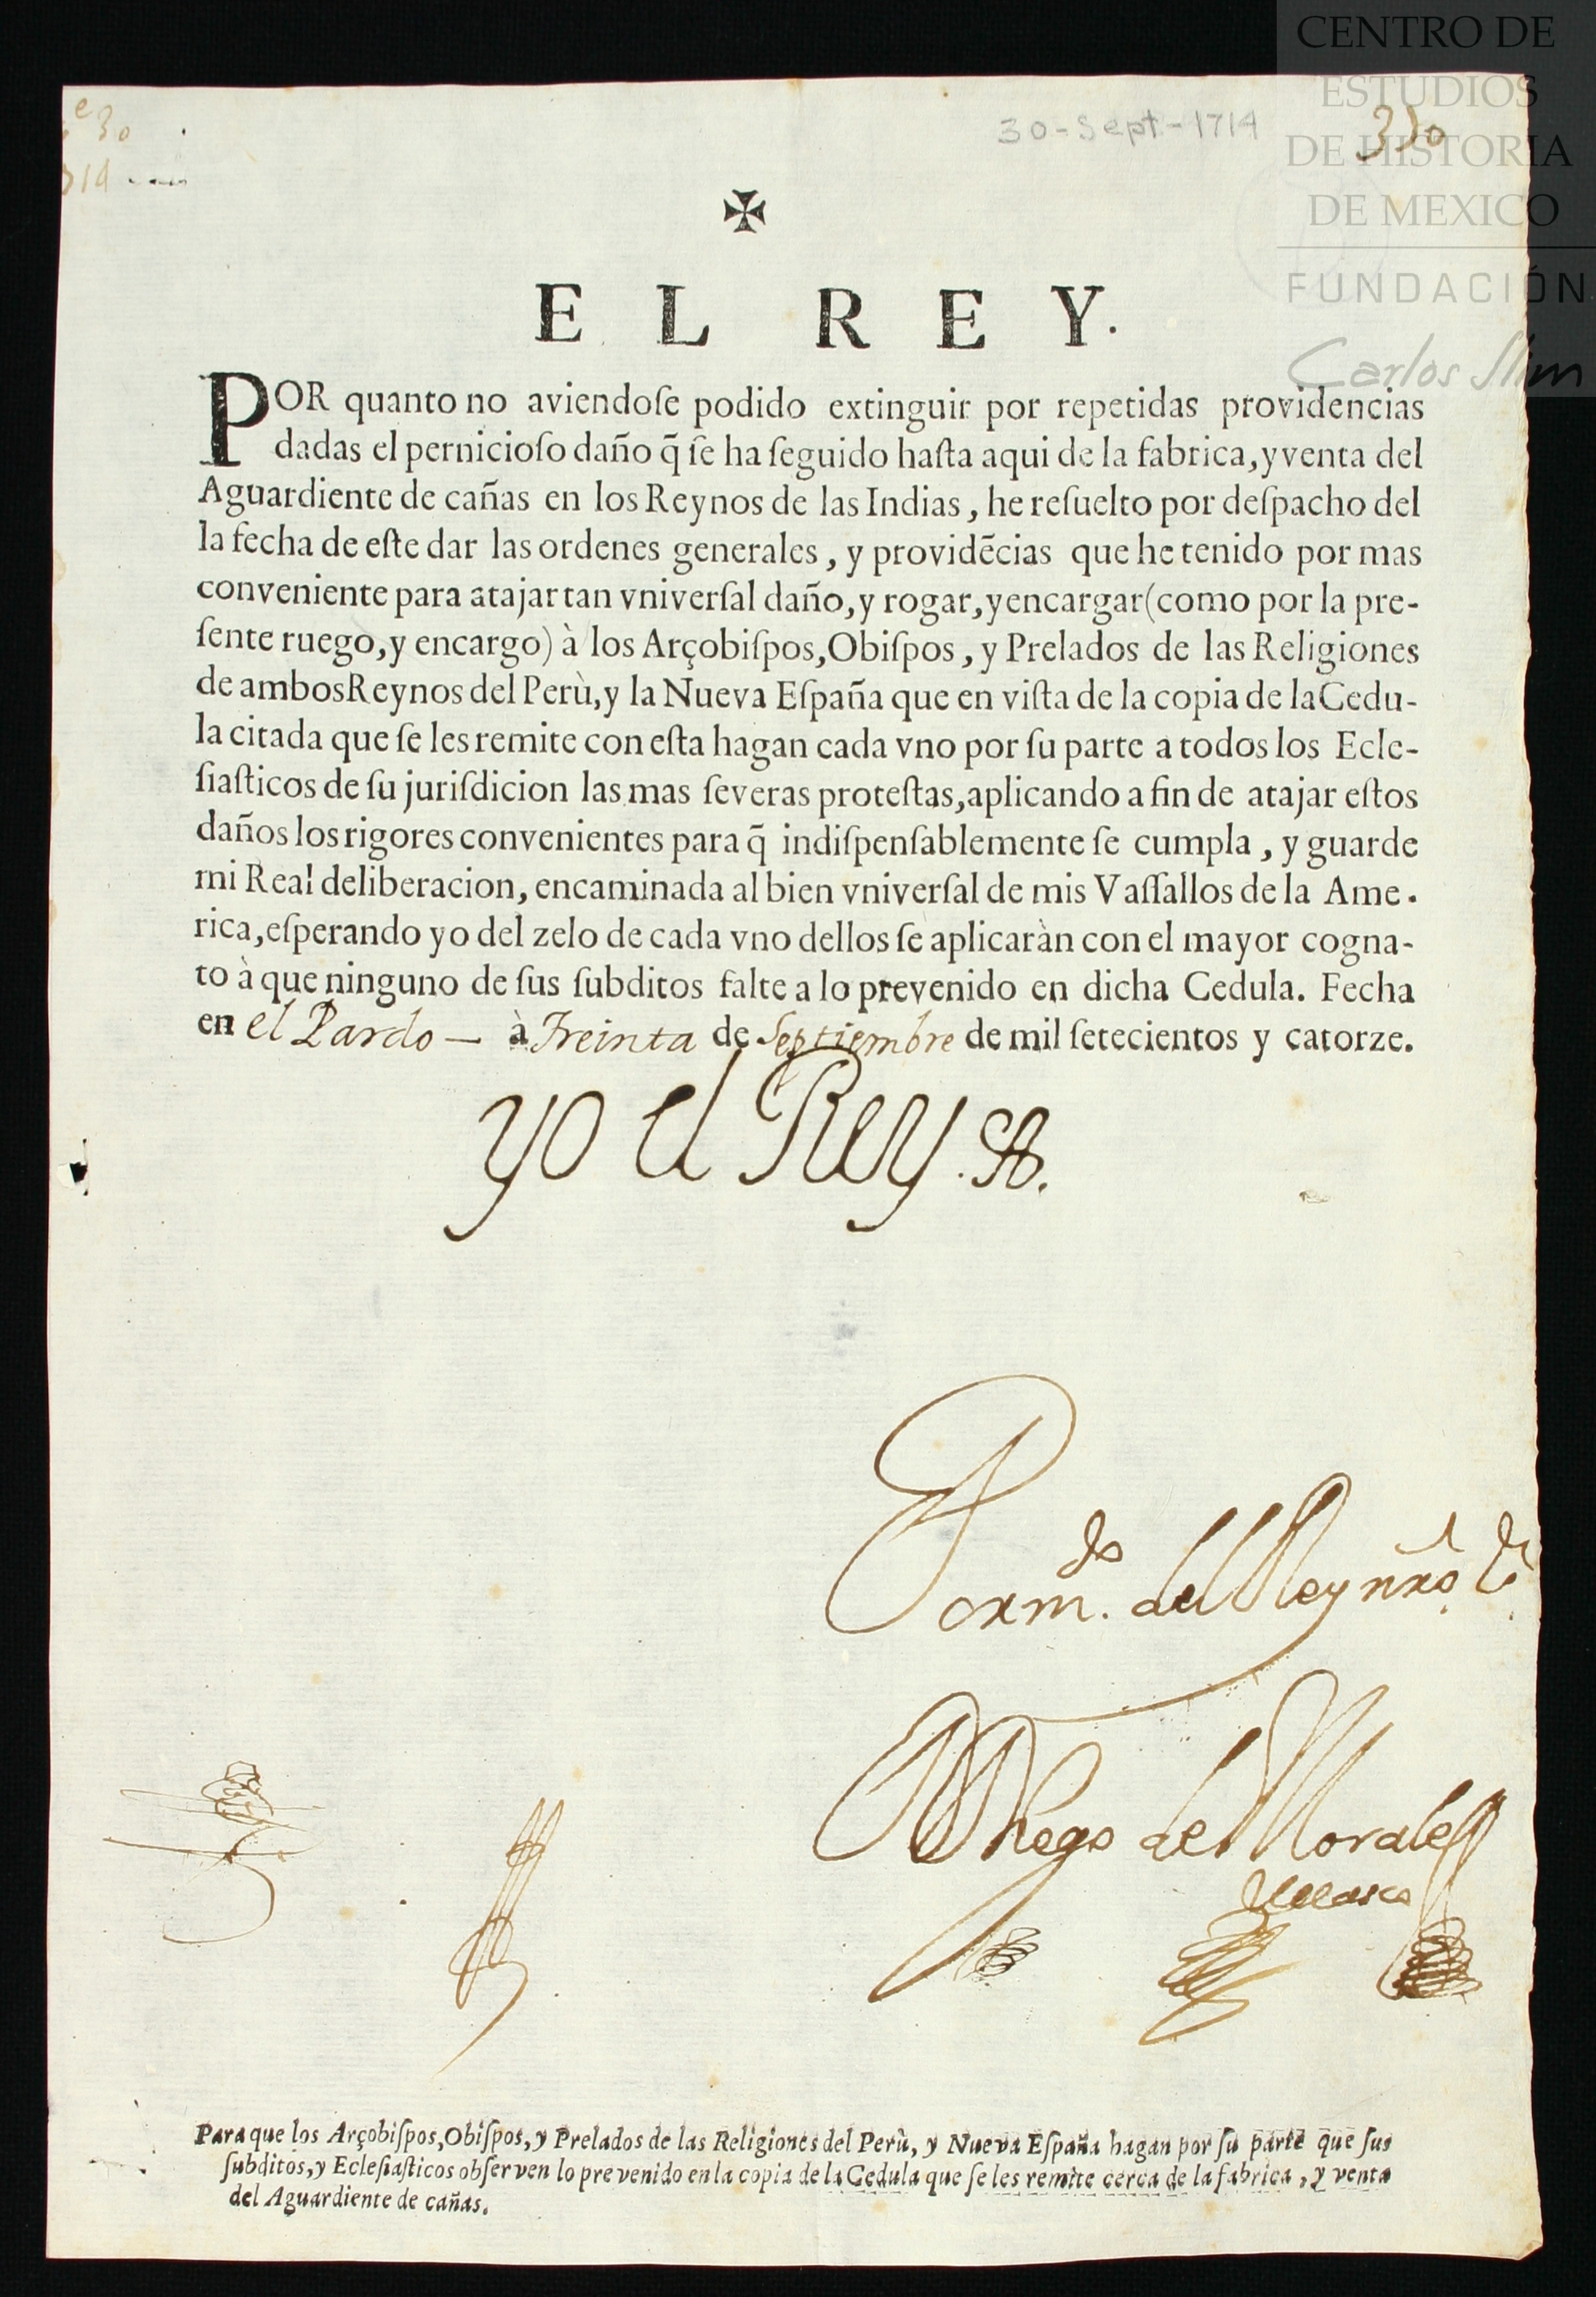 CENTRO DE
ESTUDIOS
DE HISTORIA
DE MEXICO
FUNDACIÓN
Carlos Slim
e 30
714
30-Sept-1714
✠
EL REY.
POR quanto no aviendoſe podido extinguir por repetidas providencias
dadas el pernicioſo daño q̃ ſe ha ſeguido haſta aqui de la fabrica, y venta del
Aguardiente de cañas en los Reynos de las Indias, he reſuelto por deſpacho del
la fecha de eſte dar las ordenes generales, y providẽcias que he tenido por mas
conveniente para atajar tan vniverſal daño, y rogar, y encargar (como por la pre-
ſente ruego, y encargo) à los Arçobiſpos, Obiſpos, y Prelados de las Religiones
de ambos Reynos del Perù, y la Nueva Eſpaña que en viſta de la copia de la Cedu-
la citada que ſe les remite con eſta hagan cada vno por ſu parte a todos los Ecle-
ſiaſticos de ſu juriſdicion las mas ſeveras proteſtas, aplicando a fin de atajar eſtos
daños los rigores convenientes para q̃ indiſpenſablemente ſe cumpla, y guarde
mi Real deliberacion, encaminada al bien vniverſal de mis Vaſſallos de la Ame.
rica, eſperando yo del zelo de cada vno dellos ſe aplicaràn con el mayor cogna-
to à que ninguno de ſus ſubditos falte a lo prevenido en dicha Cedula. Fecha
en el Pardo — à Treinta de Septiembre de mil ſetecientos y catorze.
yo el Rey
Por m.do del Rey nr̃o S.r
Diego de Morales
Velasco
Para que los Arçobiſpos, Obiſpos, y Prelados de las Religiones del Perù, y Nueva Eſpaña hagan por ſu parte que ſus
ſubditos, y Ecleſiaſticos obſerven lo prevenido en la copia de la Cedula que ſe les remite cerca de la fabrica, y venta
del Aguardiente de cañas.